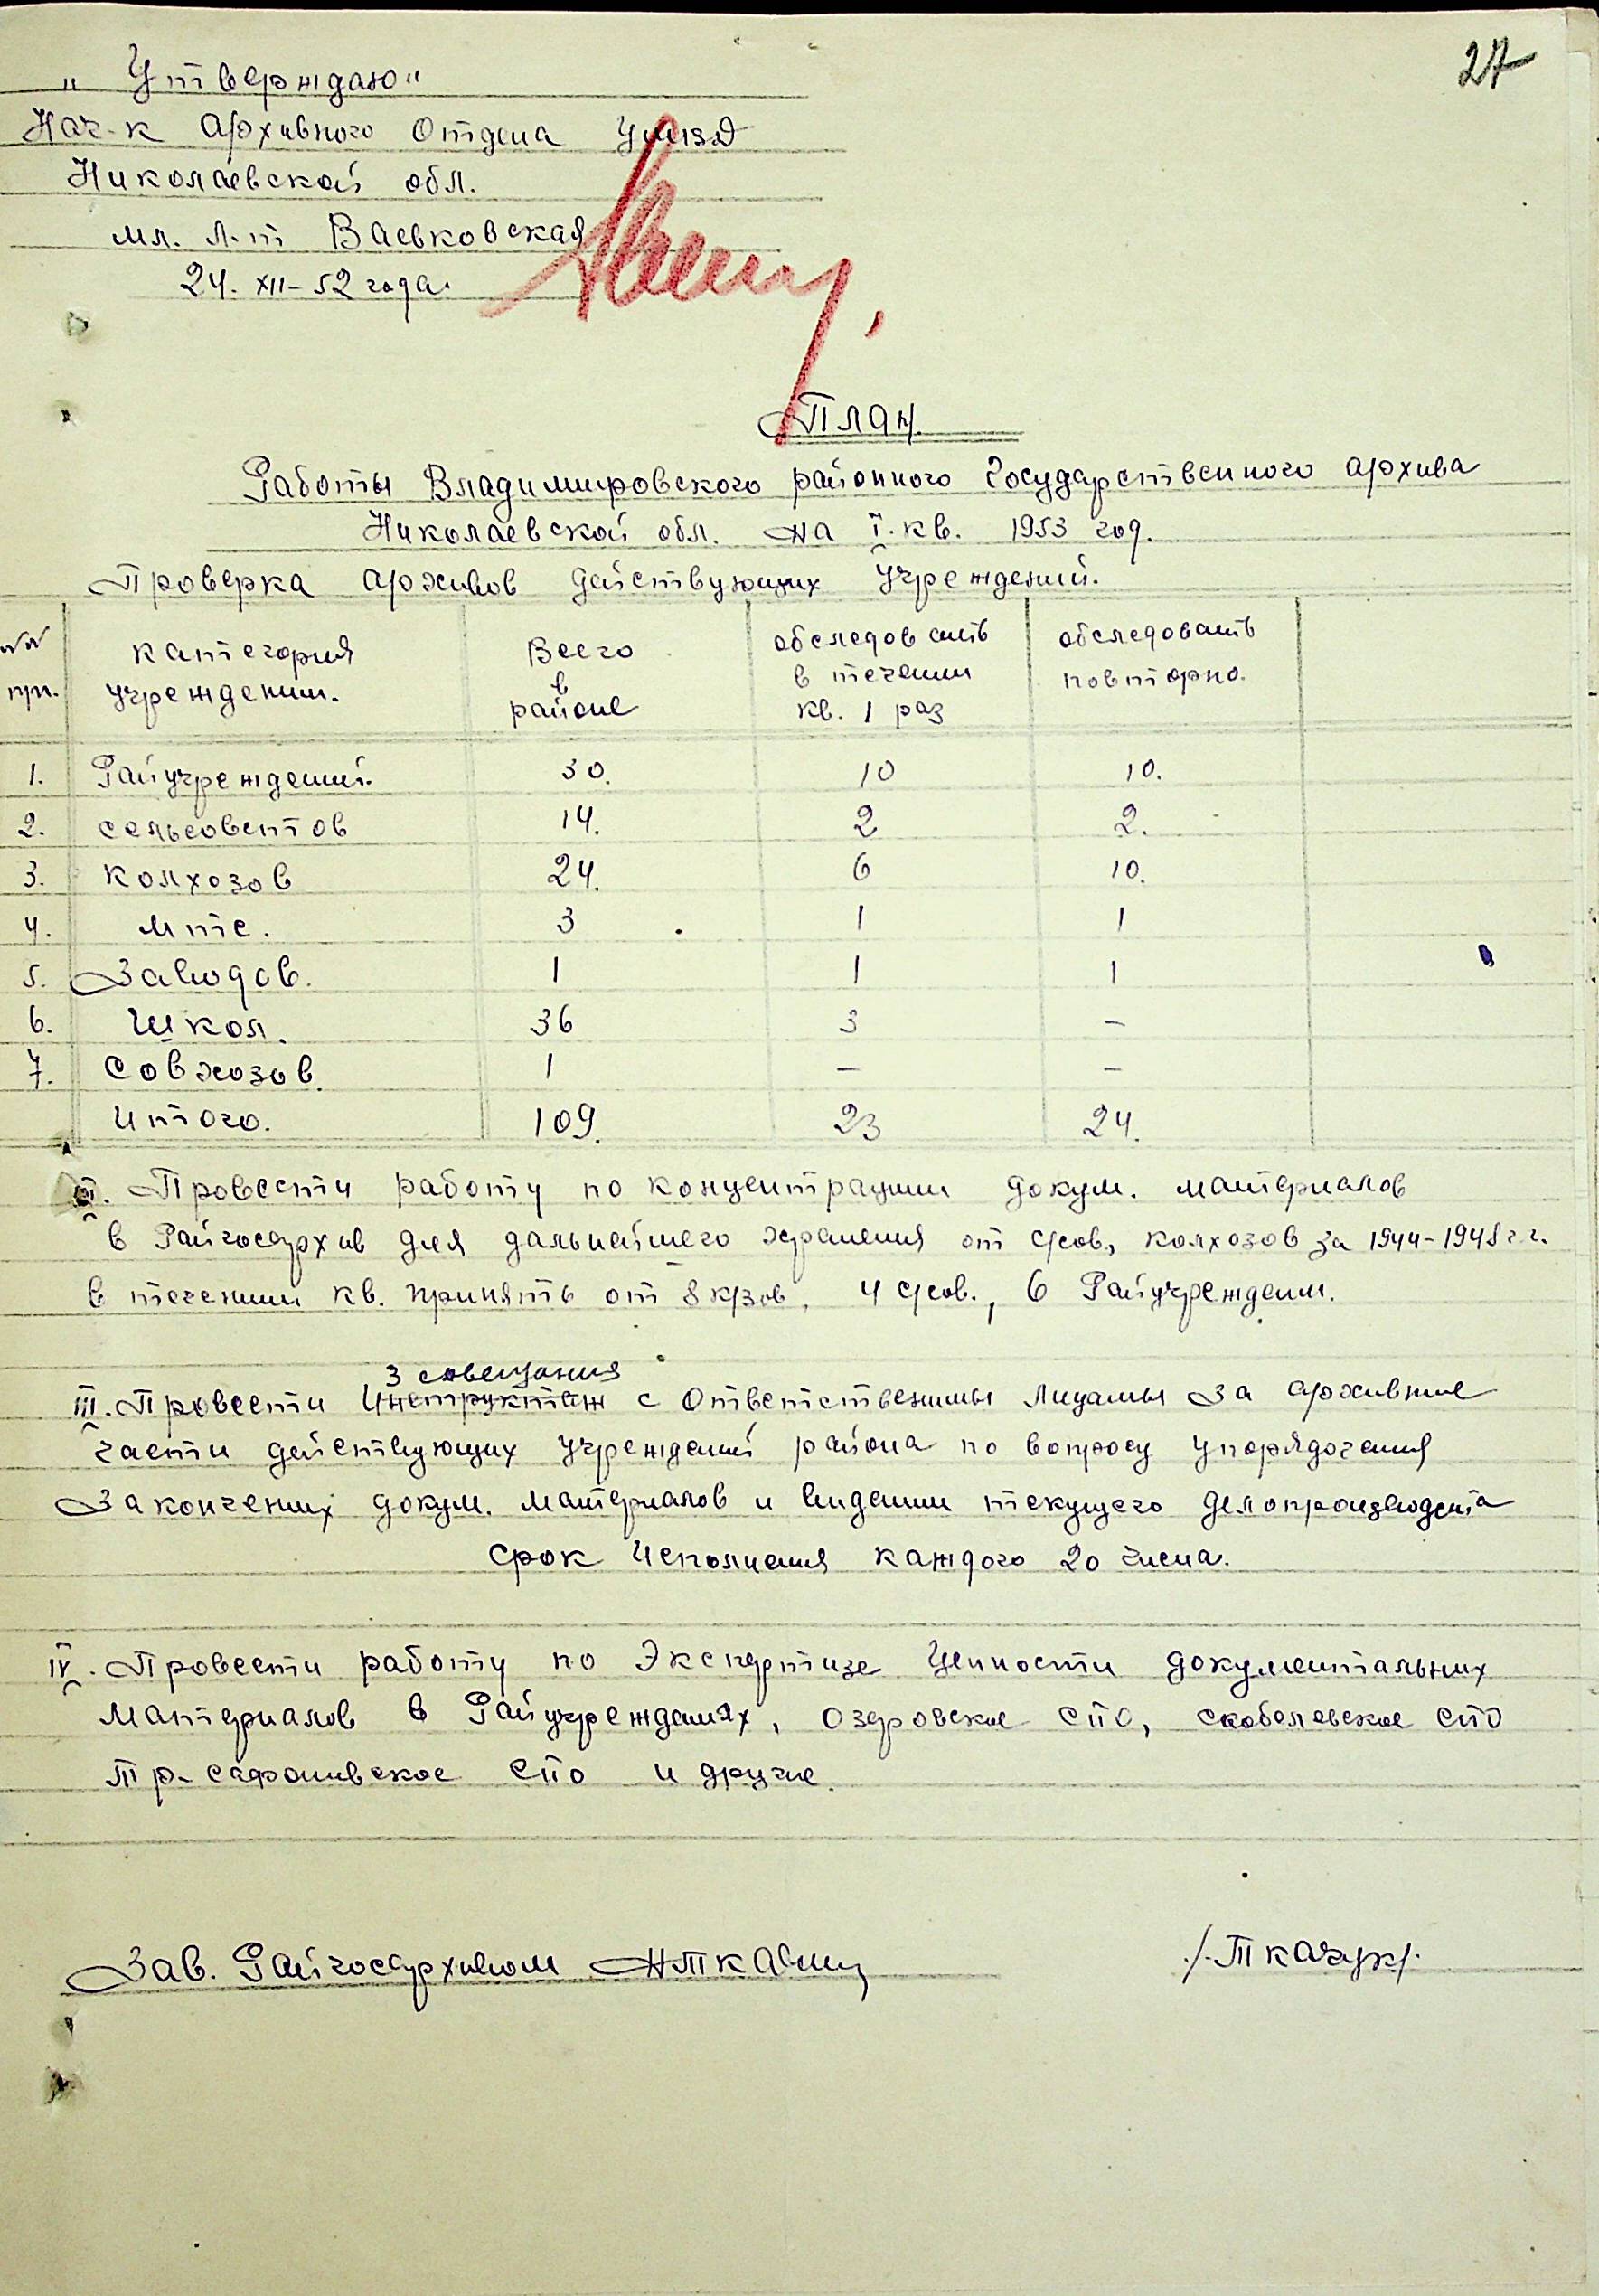 27
„Утверждаю"
Нач-к Архивного Отдела УМВД
Николаевской обл.
мл. л-т Васьковская
24. XII-52 года.
План.
Работы Владимировского районного Государственного Архива
Николаевской обл. на I. кв. 1953 год.
Проверка Архивов действующих учреждений.
№№ категория Всего обследовать обследовать
пп. учреждении. в в течении повторно.
районе кв. 1 раз
1. Райучреждений. 30. 10 10.
2. сельсоветов 14. 2 2.
3. колхозов 24. 6 10.
4. мтс. 3 1 1
5. Заводов. 1 1 1
6. Школ. 36 3 –
7. Совхозов. 1 – –
Итого. 109. 23 24.
II. Провести работу по концентрации докум. материалов
в Райгосархив для дальнейшего хранения от с/сов., колхозов за 1944-1948 г.г.
в течении кв. принять от 8 к/зов, 4 с/сов., 6 Райучрежден.
3 совещания
III. Провести Инструктаж с Ответственными Лицами за архивные
части действующих учреждений района по вопросу упорядочения
Законченых докум. материалов и видении текущего делопроизводста
Срок Исполнения каждого 20 числа.
IV. Провести работу по Экспертизе Ценности документальных
материалов в Райучреждениях, Озеровское СПО, скобелевское СПО
Тр-сафоновское СПО и другие.
Зав. Райгосархивом /Ткачук/.